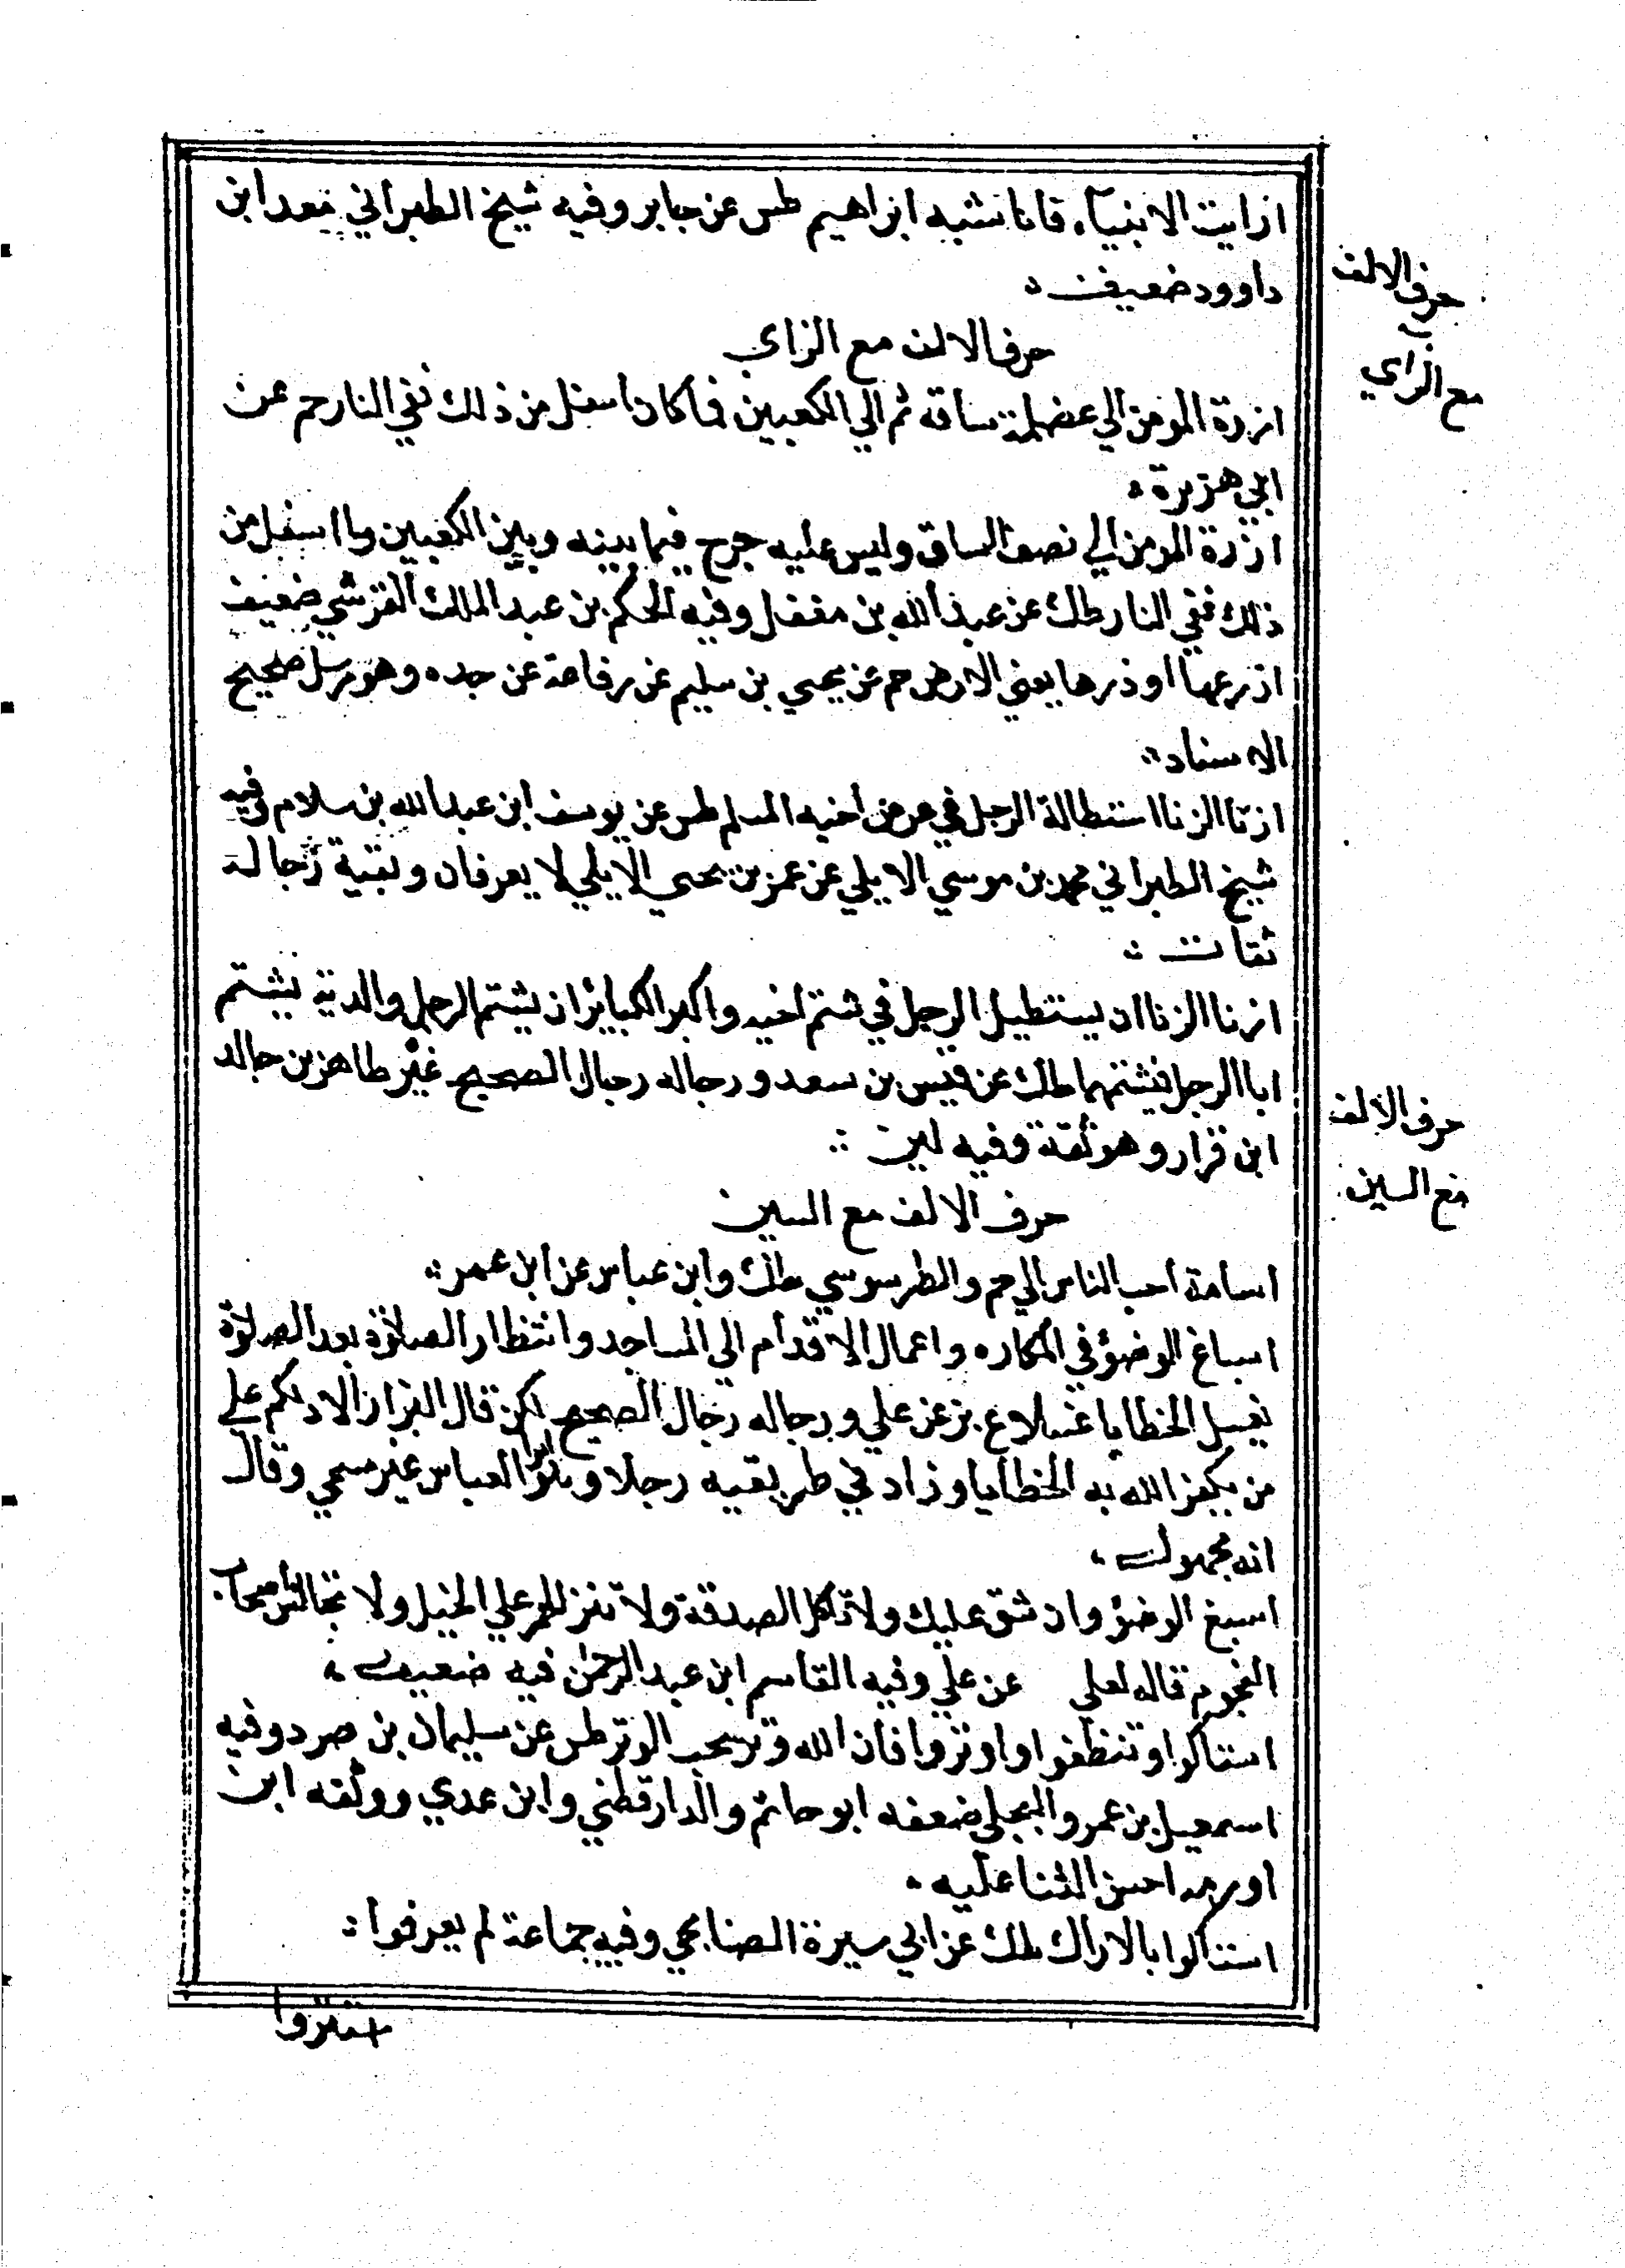 ارايت الانبيآء فانا نشبه ابراهيم طس عن جابر وفيه شيخ الطبراني مقدا ابن
داوود ضعيف
حرف الالف مع الزاي
ازرة المومن الي عضلة ساقه ثم الي الكعبين فما كان اسفل من ذلك نفي النار حم عن
ابي هريرة
ازرة المومن الي نصف الساق وليس عليه حرج فيما بينه وبين الكعبين وما اسفل من
ذلك ففي النار طك عن عبد الله بن مغفل وفيه الحكم بن عبد الملك القرشي ضعيف
ازرعها او ذرها يعني الارض حم عن يحيي بن سليم عن رفاعة عن جده وهو مرسل صحيح
الاسناد
ازنا الزنا استطالة الرجل في عرض اخيه المسلم طس عن يوسف ابن عبد الله بن سلام وفيه
شيخ الطبراني محمد بن موسي الايلي عن عمر بن يحيي الايلي لا يعرفان وبقية رجاله
ثقات
ازنا الزنا ان يستطيل الرجل في شتم اخيه واكبر الكبائر ان يشتم الرجل والديه يشتم
ابا الرجل فيشتمهما طك عن قيس بن سعد ورجاله رجال الصحيح غير طاهر بن خالد
ابن قرار وهو ثقة وفيه لين
حرف الالف مع السين
اسامة احب الناس الي حم والطرسوسي طك وابن عباس عن ابن عمر
اسباغ الوضؤ في المكاره واعمال الاقدام الي المساجد وانتظار الصلاة بعد الصلوة
يغسل الخطايا غسلا ع بز عن علي ورجاله رجال الصحيح لكن قال البزار الا ادلكم علي
من يكفر الله به الخطايا وزاد في طريقيه رجلا وهو ابو العباس غير مسمي وقال
انه مجهول
اسبغ الوضؤ وان شق عليك ولا تاكل الصدقة ولا تنز الحمر علي الخيل ولا تجالس اصحاب
النجوم قاله لعلي عن علي وفيه القاسم ابن عبد الرحمن فيه ضعيف
استاكوا وتنظفوا واوتروا فان الله وتر يحب الوتر طس عن سليمان بن صرد وفيه
اسمعيل بن عمرو البجلي ضعفه ابو حاتم والدارقطني وابن عدي ووثقه ابن
اورمه احسن الثنا عليه
استاكوا بالاراك طك عن ابي سيرة الصنابحي وفيه جماعة لم يعرفوا
حرف الالف
مع الزاي
حرف الالف
مع السين